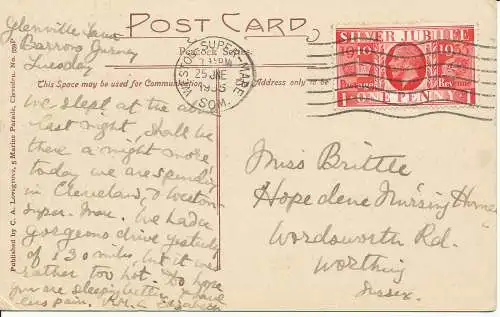 POST CARD
Peacock Series
This Space may be used for Communication
Address only to be
Published by C. A. Lovegrove, 5 Marine Parade, Clevedon. No.
WESTON-SUPER-MARE
25 JNE
1935
SOM.
SILVER JUBILEE
1910 1935
Postage Revenue
ONE PENNY
Glenville Farm
Barrow Gurney
Tuesday
We slept at the above
last night. Shall be
there a night more
today we are spending
in Clevedon, & Weston-
Super-Mare. We had a
gorgeous drive yesterday
of 130 miles, but it was
rather too hot. Do hope
you are sleeping better, & have
less pain.
Miss Brittle
Hopedene Nursing Home
Wordsworth Rd.
Worthing
Sussex.